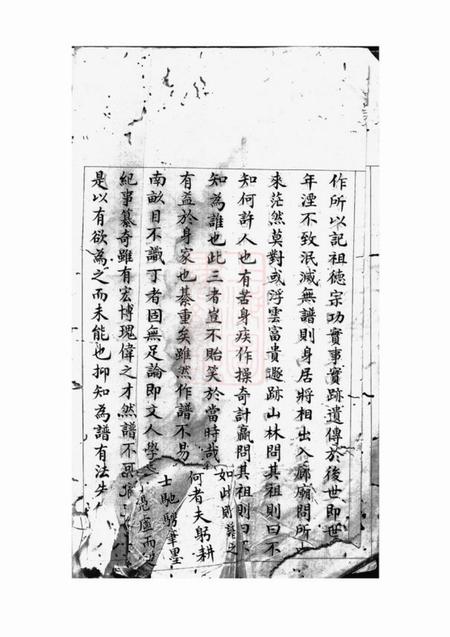 作所以記祖德宗功實事實跡遺傳於後世即世
年湮不致泯滅無譜則身居將相出入廊廟問所
來茫然莫對或浮雲富貴遯跡山林問其祖則曰不
知何許人也有苦身疾作操奇計贏問其祖則曰
知為誰也此三者豈不貽笑於當時哉如此則譜之
有益於身家也綦重矣雖然作譜不易何者夫躬耕
南畝目不識丁者固無足論即文人學士馳騁筆墨
紀事纂奇雖有宏博瑰偉之才然譜不
是以有欲為之而未能也抑知為譜有法